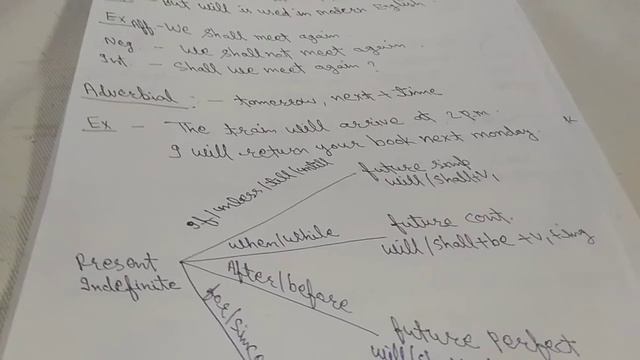 but will is used in modern English.
Ex Aff - We shall meet again
Neg - We shall not meet again.
Int - Shall we meet again?
Adverbial : - tomorrow, next + time
Ex - The train will arrive at 2 P.m.
I will return your book next monday.
If/unless/till/until
future simp
will/shall+V1
when/while
future cont.
will/shall+be+V1+ing
Present
Indefinite
After/before
for/since
future perfect
will/